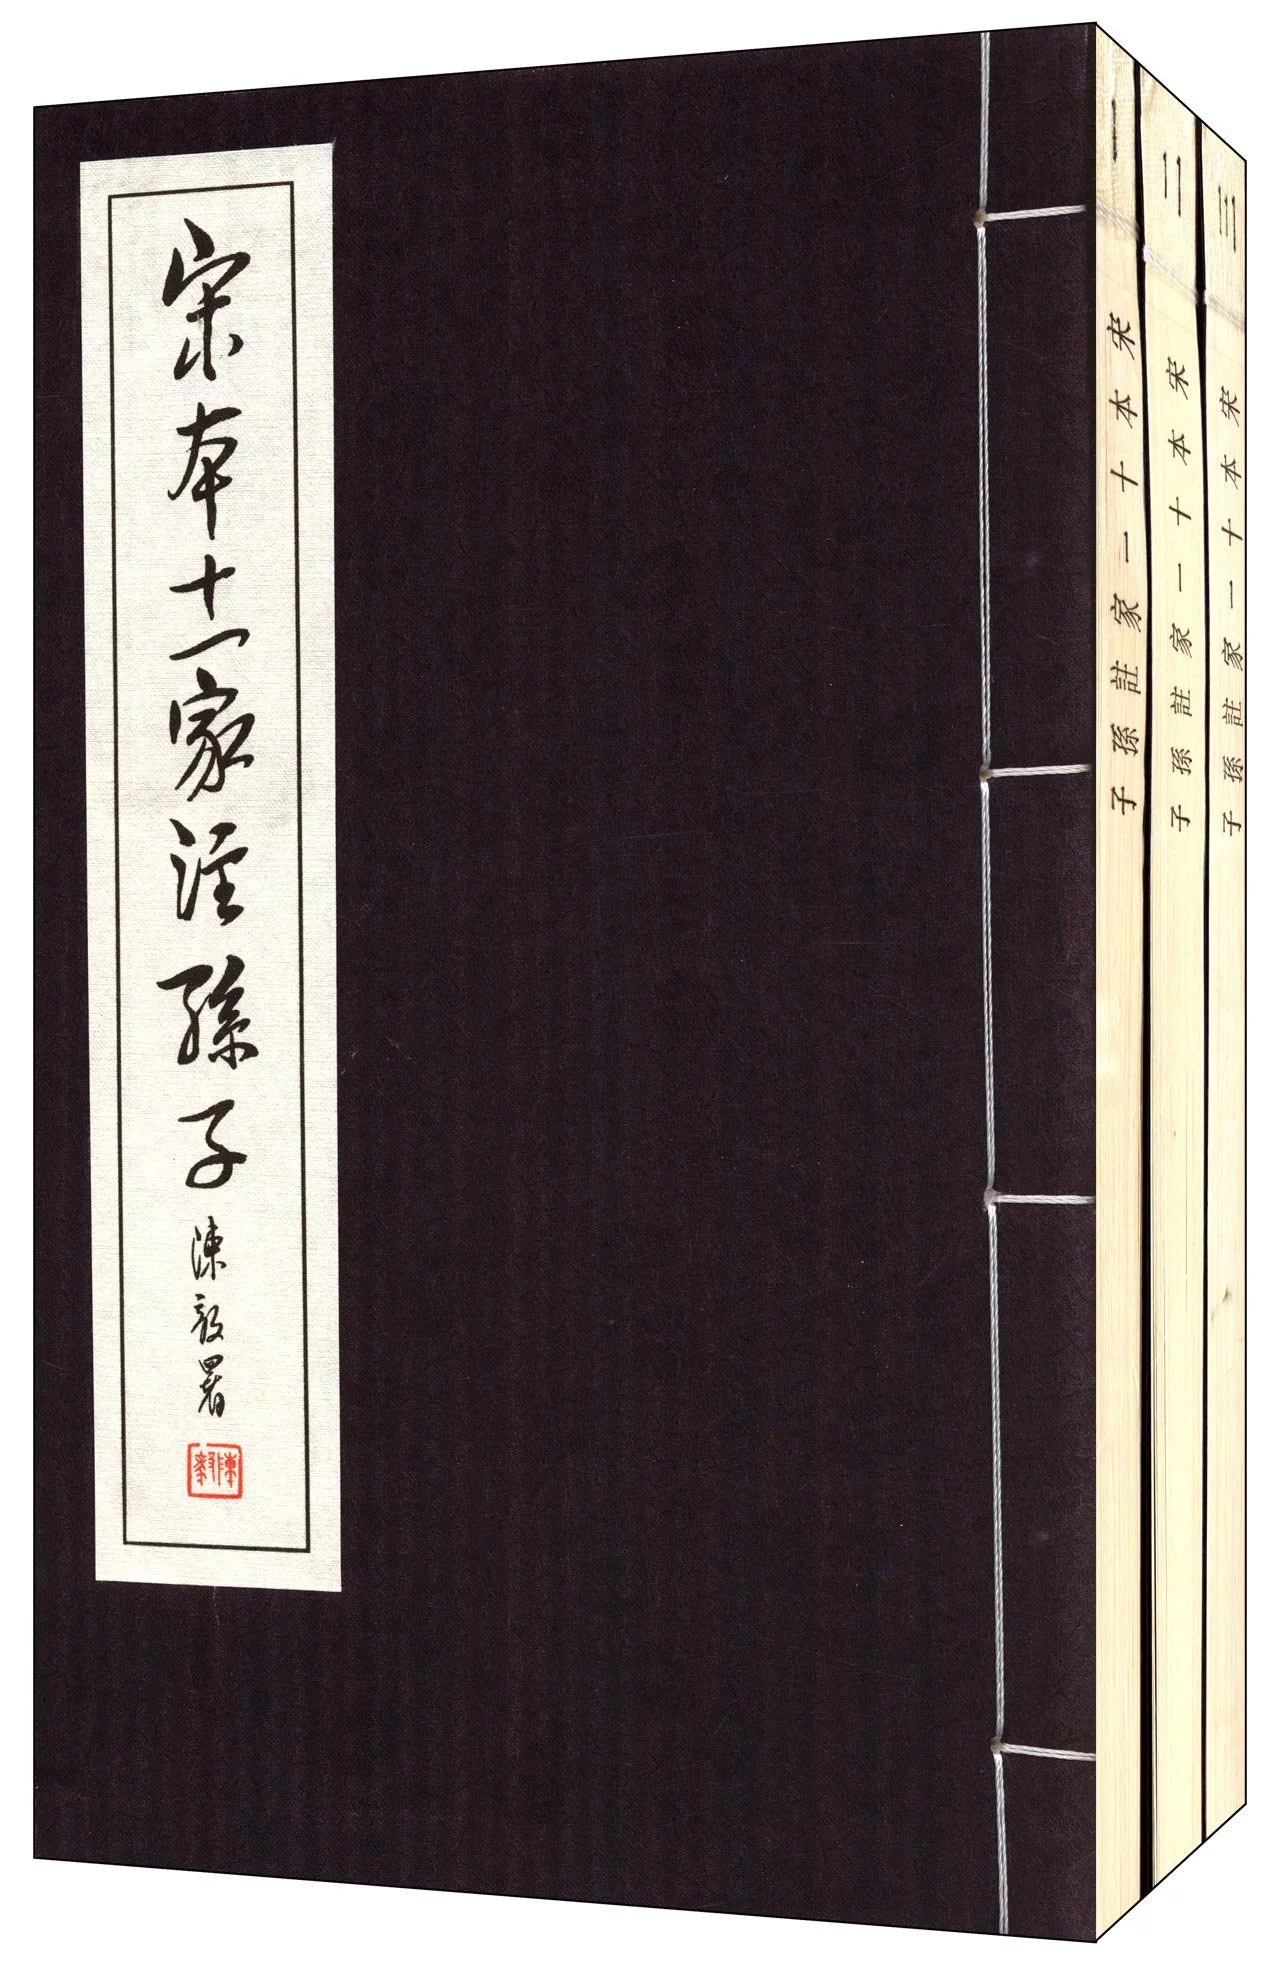 宋本十一家注孫子
陳毅署
陳毅
一 宋本十一家註孫子
二 宋本十一家註孫子
三 宋本十一家註孫子